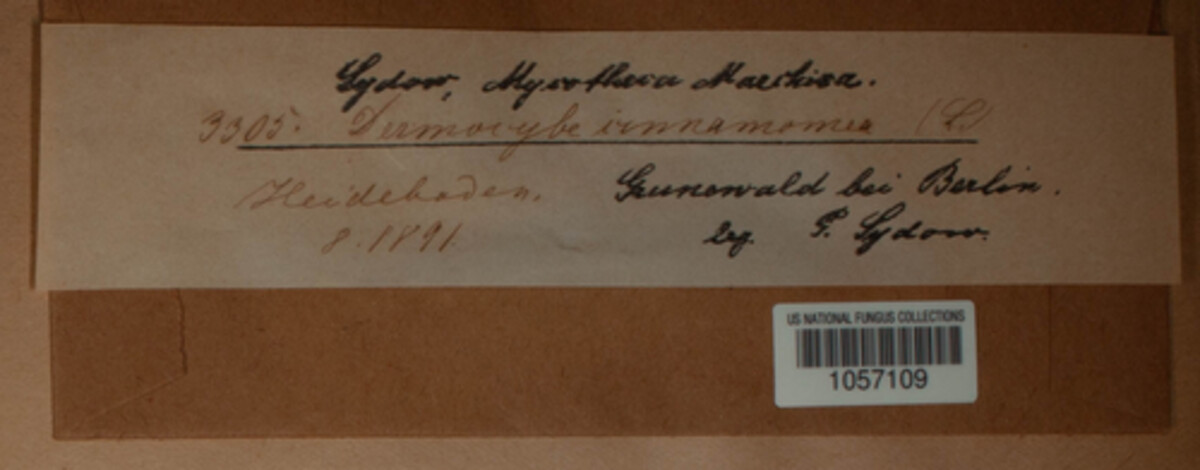 Sydow, Mycotheca Marchica.
3305. Dermocybe cinnamomea (L.)
Heideboden. Grunewald bei Berlin.
8.1891 leg. P. Sydow.
US NATIONAL FUNGUS COLLECTIONS
1057109